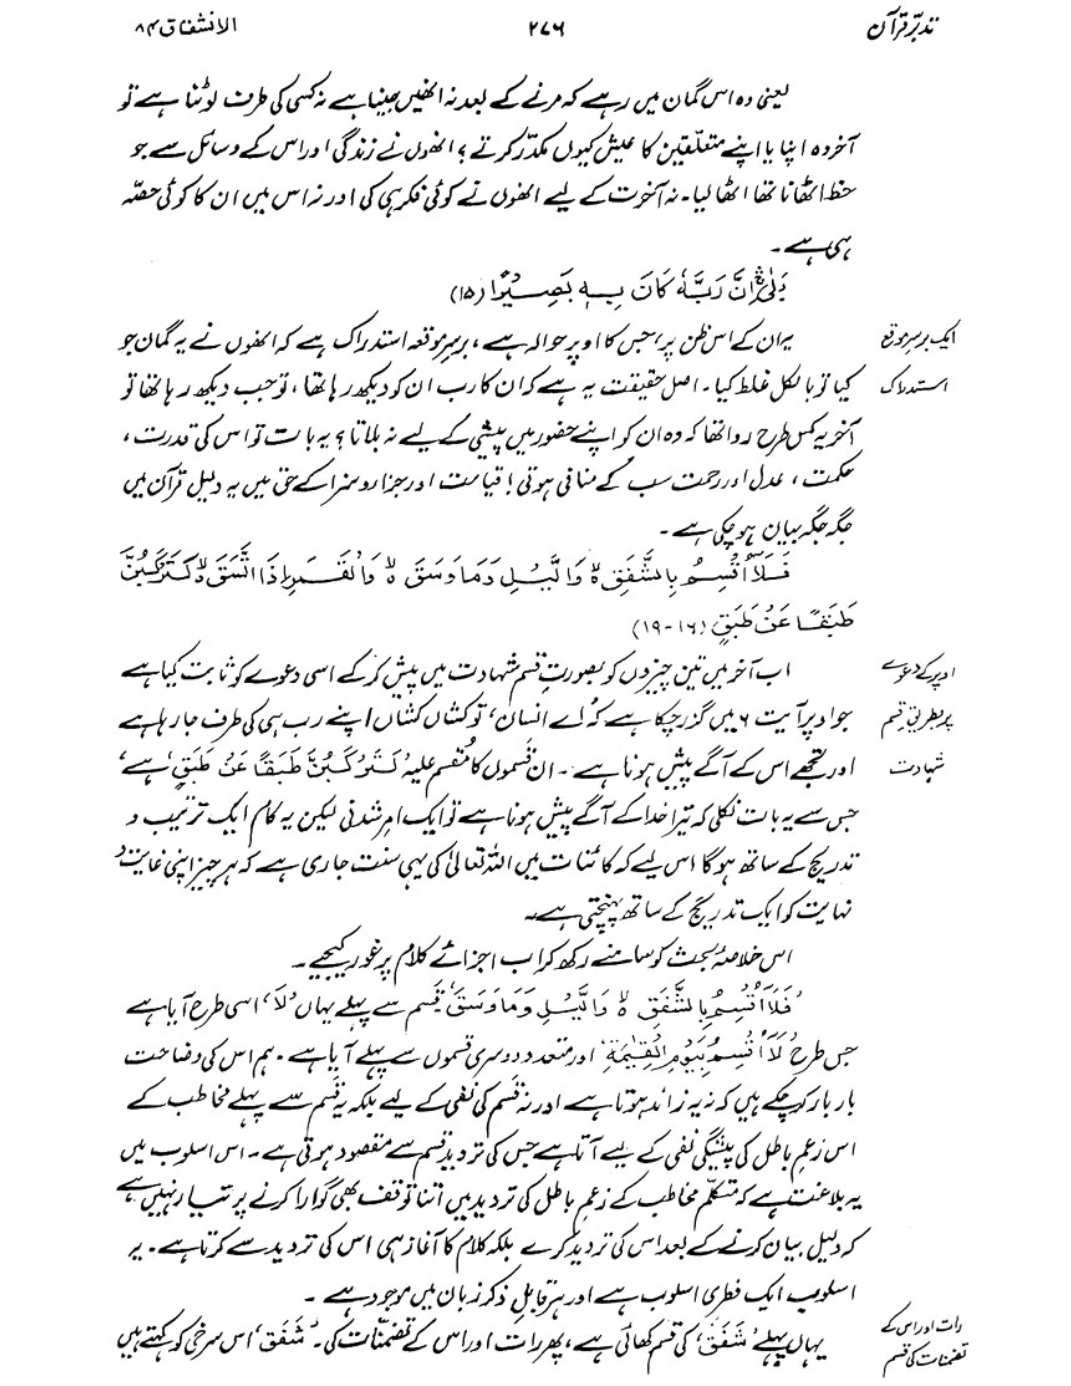 تدبّرِ قرآن ۲۷۶ الانشقاق ۸۴
یعنی وہ اس گمان میں رہے کہ مرنے کے بعد نہ انھیں جینا ہے نہ کسی کی طرف لوٹنا ہے تو
آخر وہ اپنا یا اپنے متعلّقین کا عیش کیوں مکدّر کرتے ؟ انھوں نے زندگی اور اس کے وسائل سے جو
حظ اٹھانا تھا اٹھا لیا۔ نہ آخرت کے لیے انھوں نے کوئی فکر ہی کی اور نہ اس میں ان کا کوئی حصّہ
ہی ہے۔
بَلٰىۚ اِنَّ رَبَّهٗ كَانَ بِهٖ بَصِيْرًا (۱۵)
ایک برسرِ موقع
استدراک
یہ ان کے اس ظن پر، جس کا اوپر حوالہ ہے، برسرِ موقعہ استدراک ہے کہ انھوں نے یہ گمان جو
کیا تو بالکل غلط کیا۔ اصل حقیقت یہ ہے کہ ان کا رب ان کو دیکھ رہا تھا، تو جب دیکھ رہا تھا تو
آخر یہ کس طرح روا تھا کہ وہ ان کو اپنے حضور میں پیشی کے لیے نہ بلاتا؟ یہ بات تو اس کی قدرت،
حکمت، عدل اور رحمت سب کے منافی ہوتی! قیامت اور جزا و سزا کے حق میں یہ دلیل قرآن میں
جگہ جگہ بیان ہو چکی ہے۔
فَلَآ اُقْسِمُ بِالشَّفَقِ ۙ وَالَّيْلِ وَمَا وَسَقَ ۙ وَالْقَمَرِ اِذَا اتَّسَقَ ۙ لَتَرْكَبُنَّ
طَبَقًا عَنْ طَبَقٍ (۱۶-۱۹)
اوپر کے دعوے
پر بطریق قسم
شہادت
اب آخر میں تین چیزوں کو بصورتِ قسم شہادت میں پیش کر کے اسی دعوے کو ثابت کیا ہے
جو اوپر آیت ۶ میں گزر چکا ہے کہ 'اے انسان، تو کشاں کشاں اپنے رب ہی کی طرف جا رہا ہے
اور تجھے اس کے آگے پیش ہونا ہے'۔ ان قسموں کا مُقسم علیہ 'لَتَرْكَبُنَّ طَبَقًا عَنْ طَبَقٍ' ہے،
جس سے یہ بات نکلی کہ تیرا خدا کے آگے پیش ہونا ہے تو ایک امرِ شدنی لیکن یہ کام ایک ترتیب و
تدریج کے ساتھ ہوگا اس لیے کہ کائنات میں اللہ تعالیٰ کی یہی سنت جاری ہے کہ ہر چیز اپنی غایت و
نہایت کو ایک تدریج کے ساتھ پہنچتی ہے۔
اس خلاصۂ بحث کو سامنے رکھ کر اب اجزائے کلام پر غور کیجیے۔
'فَلَآ اُقْسِمُ بِالشَّفَقِ ۙ وَالَّيْلِ وَمَا وَسَقَ' قَسم سے پہلے یہاں 'لَا' اسی طرح آیا ہے
جس طرح 'لَآ اُقْسِمُ بِيَوْمِ الْقِيٰمَةِ' اور متعدد دوسری قسموں سے پہلے آیا ہے۔ ہم اس کی وضاحت
بار بار کر چکے ہیں کہ نہ یہ زائد ہوتا ہے اور نہ قَسم کی نفی کے لیے بلکہ یہ قَسم سے پہلے مخاطب کے
اس زعمِ باطل کی پیشگی نفی کے لیے آتا ہے جس کی تردید قسم سے مقصود ہوتی ہے۔ اس اسلوب میں
یہ بلاغت ہے کہ متکلّم مخاطب کے زعمِ باطل کی تردید میں اتنا توقف بھی گوارا کرنے پر تیار نہیں ہے
کہ دلیل بیان کرنے کے بعد اس کی تردید کرے بلکہ کلام کا آغاز ہی اس کی تردید سے کرتا ہے۔ یہ
اسلوب ایک فطری اسلوب ہے اور ہر قابلِ ذکر زبان میں موجود ہے۔
رات اور اس کے
تضمنات کی قسم
یہاں پہلے 'شَفَق' کی قسم کھائی ہے، پھر رات اور اس کے تضمّنات کی۔ 'شَفَق' اس سرخی کو کہتے ہیں